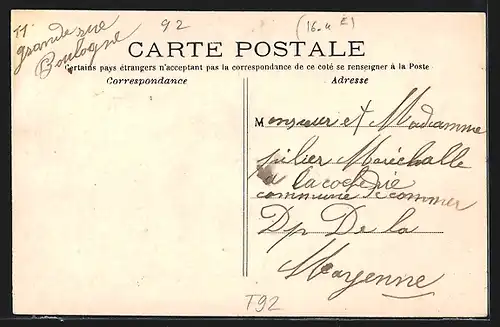 11 grande rue
Boulogne
92
(16-u E)
CARTE POSTALE
Certains pays étrangers n'acceptant pas la correspondance de ce coté se renseigner à la Poste
Correspondance
Adresse
Monsieur et Madamme
Maréchalle
a la
commune de commer
Dp De la
Mayenne
T92